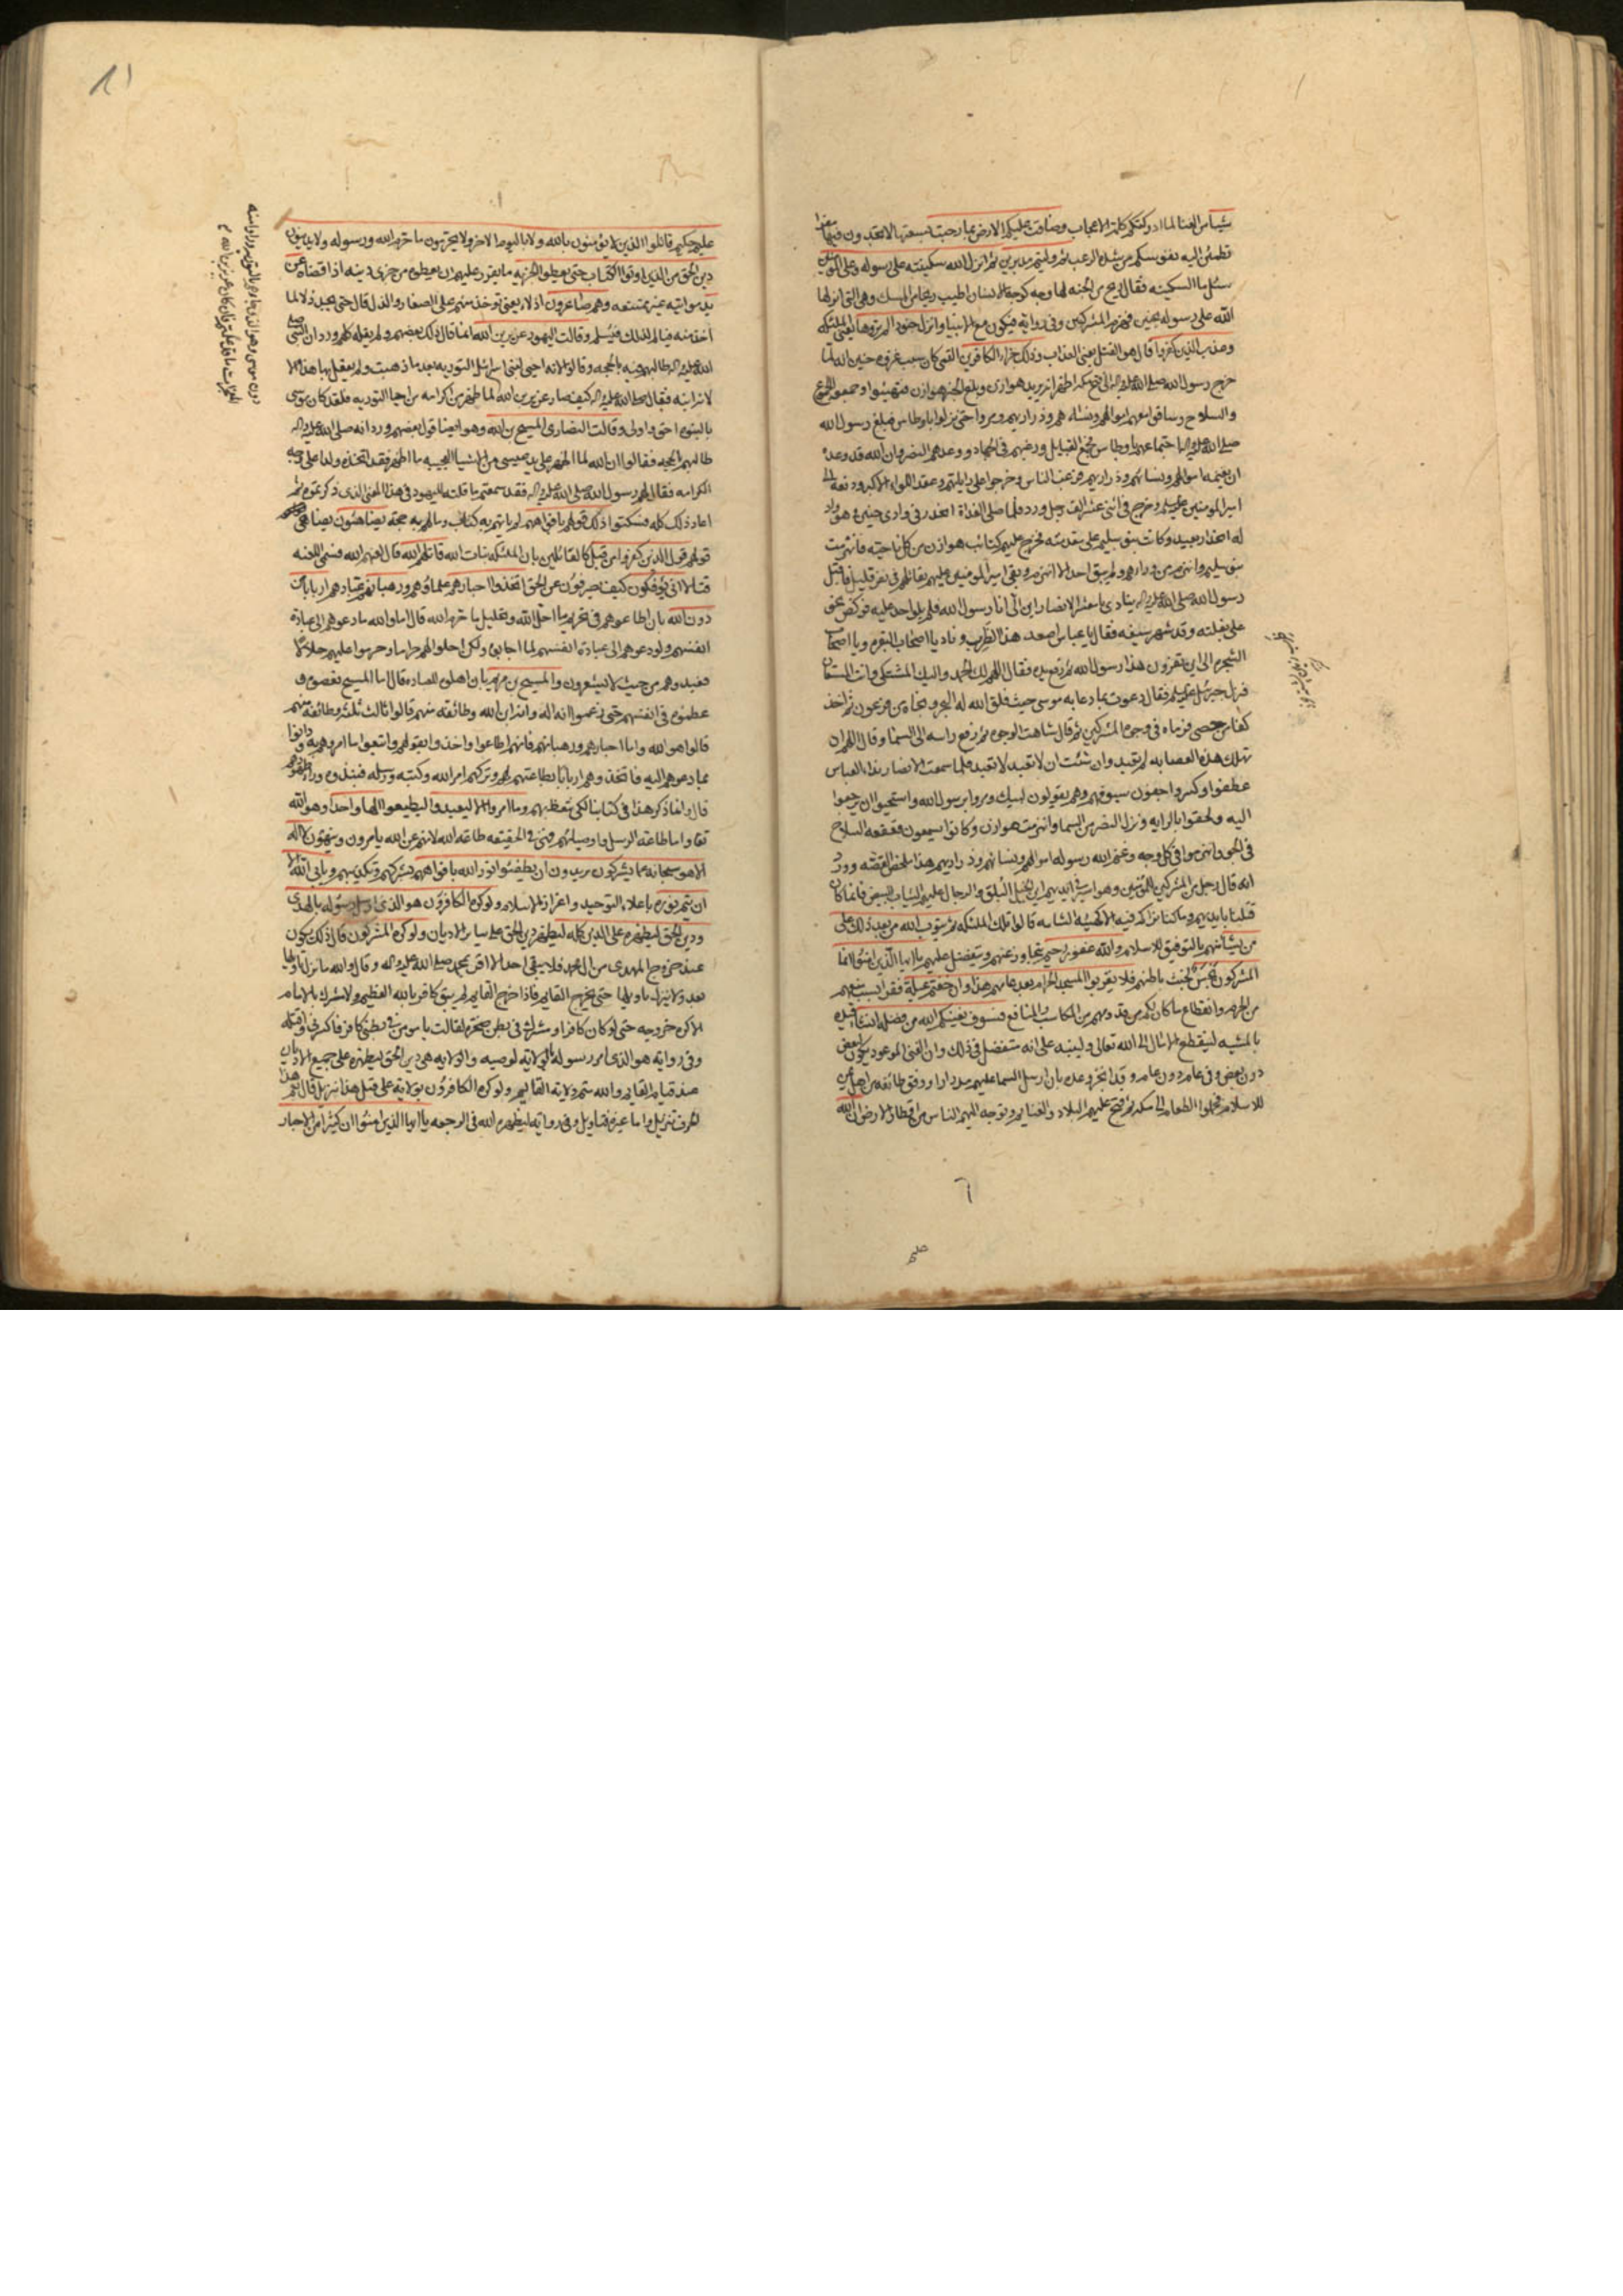 شيئا من الغنا لما ادركتكم كلمة الاعجاب وضاقت عليكم الارض بما رحبت بسعتها لا تجدون فيها مفرا
تطمئن اليه نفوسكم من شدة الرعب ثم وليتم مدبرين ثم انزل الله سكينته على رسوله وعلى المؤمنين
سئل ما السكينة فقال ريح من الجنة لها وجه كوجه الانسان اطيب ريحا من المسك وهي التي انزلها
الله على رسوله بحنين فهزم المشركين وفي رواية فيكون مع الانبيا وانزل جنودا لم تروها يعني الملئكة
وعذب الذين كفروا قال هو القتل يعني العذاب وذلك جزاء الكافرين القمي كان سبب غزوة حنين انه لما
خرج رسول الله صلى الله عليه واله الى فتح مكة اظهر انه يريد هوازن وبلغ الخبر هوازن فتهيئوا وجمعوا الجموع
والسلاح وساقوا معهم اموالهم ونساءهم وذراريهم ومروا حتى نزلوا باوطاس فبلغ رسول الله
صلى الله عليه واله اجتماعهم باوطاس فجمع القبايل ورغبهم في الجهاد ووعدهم النصر وان الله قد وعده
ان يغنمه اموالهم ونساءهم وذراريهم فرغب الناس وخرجوا على راياتهم وعقد اللواء الاكبر ودفعه الى
امير المومنين عليه السلم وخرج في اثنى عشر الف رجل ورد فلما صلى الغداة انحدر في وادي حنين وهو واد
له انحدار بعيد وكانت بنو سليم على مقدمته فخرج عليهم كتائب هوازن من كل ناحية فانهزمت
بنو سليم وانهزم من وراءهم ولم يبق احد الا انهزم وبقي امير المومنين عليه السلم يقاتلهم في نفر قليل فاقبل
رسول الله صلى الله عليه واله ينادي يا معشر الانصار اين الى انا رسول الله فلم يلو احد عليه فركض نحو
على بغلته وقد شهر سيفه فقال يا عباس اصعد هذا الظرب وناد يا اصحاب البقرة ويا اصحاب
الشجرة الى اين تفرون هذا رسول الله ثم رفع يده فقال اللهم لك الحمد واليك المشتكى وانت المستعان
فنزل جبرئيل عليه السلم فقال دعوت بما دعا به موسى حيث فلق الله له البحر ونجاه من فرعون ثم اخذ
كفا من حصى فرماه في وجوه المشركين ثم قال شاهت الوجوه ثم رفع راسه الى السما وقال اللهم ان
تهلك هذه العصابة لم تعبد وان شئت ان لا تعبد لا تعبد فلما سمعت الانصار نداء العباس
عطفوا وكسروا جفون سيوفهم وهم يقولون لبيك ومروا برسول الله واستحيوا ان يرجعوا
اليه ولحقوا بالراية ونزل النصر من السما وانهزمت هوازن وكانوا يسمعون قعقعة السلاح
في الجو وانهزموا في كل وجه وغنم الله رسوله اموالهم ونساءهم وذراريهم هذا ملخص القصة وورد
انه قال رجل من المشركين للمؤمنين وهو اسير في ايديهم اين الخيل البلق والرجال عليهم الثياب البيض فانما كان
قتلنا بايديهم وما كنا نراكم فيه الا كهيئة الشامة قالوا تلك الملئكة ثم يتوب الله من بعد ذلك على
من يشاء منهم بالتوفيق للاسلام والله غفور رحيم يتجاوز عنهم ويتفضل عليهم يا ايها الذين امنوا انما
المشركون نجس لخبث باطنهم فلا يقربوا المسجد الحرام بعد عامهم هذا وان خفتم عيلة فقرا بسبب منعهم
من الحرم وانقطاع ما كان لكم من قدومهم من المكاسب والمنافع فسوف يغنيكم الله من فضله ان شاء قيده
بالمشية لينقطع الامال الى الله تعالى ولينبه على انه متفضل في ذلك وان الغنى الموعود يكون لبعض
دون بعض وفي عام دون عام وقد انجز وعده بان ارسل السما عليهم مدرارا ووفق طائفة من اهل اليمن
للاسلام فحملوا الطعام الى مكة ثم فتح عليهم البلاد والغنايم وتوجه اليهم الناس من اقطار الارض ان الله
عليم حكيم قاتلوا الذين لا يؤمنون بالله ولا باليوم الاخر ولا يحرمون ما حرم الله ورسوله ولا يدينون
دين الحق من الذين اوتوا الكتاب حتى يعطوا الجزية ما يقرر عليهم ان يعطوه من جزى دينه اذا قضاه عن
يد مواتية غير ممتنعة وهم صاغرون اذلاء يعني توخذ منهم على الصغار والذل قال حتى يجد ذلا لما
اخذ منه فيالم لذلك فيسلم وقالت اليهود عزير بن الله انما قال ذلك بعضهم ولم يقله كلهم ورد ان النبي صلى
الله عليه واله طالبهم فيه بالحجة وقالوا لانه احيى لبني اسرائيل التورية بعد ما ذهبت ولم يفعل بها هذا الا
لانه ابنه فقال صلى الله عليه واله كيف صار عزير بن الله لما ظهر من اكرامه من احيا التورية فلقد كان موسى
بالبنوة احق واولى وقالت النصارى المسيح بن الله وهو ايضا قول بعضهم ورد انه صلى الله عليه واله
طالبهم بالحجة فقالوا ان الله لما اظهر على يد عيسى من الاشيا العجيبة ما اظهر فقد اتخذه ولدا على وجه
الكرامة فقال لهم رسول الله صلى الله عليه واله فقد سمعتم ما قلته لليهود في هذا المعنى الذي ذكرتموه ثم
اعاد ذلك كله فسكتوا ذلك قولهم بافواههم لم ياتهم به كتاب وما لهم به حجة يضاهئون يضاهي
قولهم قول الذين كفروا من قبل كالقائلين بان الملئكة بنات الله قاتلهم الله قال لعنهم الله فسمى اللعنة
قتالا انى يؤفكون كيف يصرفون عن الحق اتخذوا احبارهم علماؤهم ورهبانهم عبادهم اربابا من
دون الله بان اطاعوهم في تحريم ما احل الله وتحليل ما حرم الله قال اما والله ما دعوهم الى عبادة
انفسهم ولو دعوهم الى عبادة انفسهم لما اجابوهم ولكن احلوا لهم حراما وحرموا عليهم حلالا
فعبدوهم من حيث لا يشعرون والمسيح بن مريم بان اهلوه للعبادة قال اما المسيح فعصوه و
عظموه في انفسهم حتى زعموا انه اله وانه ابن الله وطائفة منهم قالوا ثالث ثلثة وطائفة منهم
قالوا هو الله واما احبارهم ورهبانهم فانهم اطاعوا واخذوا بقولهم واتبعوا ما امروهم به ودانوا
بما دعوهم اليه فاتخذوهم اربابا بطاعتهم لهم وتركهم امر الله وكتبه ورسله فنبذوه وراء ظهورهم
قال وانما ذكر هذا في كتابنا لكي نتعظ بهم وما امروا الا ليعبدوا ليطيعوا الها واحدا وهو الله
تعا واما طاعة الرسل واوصيائهم فهي في الحقيقة طاعة الله لانهم عن الله يامرون وينهون لا اله
الا هو سبحانه عما يشركون يريدون ان يطفئوا نور الله بافواههم بشركهم وتكذيبهم ويابى الله الا
ان يتم نوره باعلاء التوحيد واعزاز الاسلام ولو كره الكافرون هو الذي ارسل رسوله بالهدى
ودين الحق ليظهره على الدين كله ليظهر دين الحق على ساير الاديان ولو كره المشركون قال ذلك يكون
عند خروج المهدي من ال محمد فلا يبقى احد الا اقر بمحمد صلى الله عليه واله وقال والله ما نزل تاويلها
بعد ولا ينزل تاويلها حتى يخرج القايم فاذا خرج القايم لم يبق كافر بالله العظيم ولا مشرك بالامام
الا كره خروجه حتى لو كان كافر او مشرك في بطن صخرة لقالت يا مومن في بطني كافر فاكسرني واقتله
وفي رواية هو الذي امر رسوله بالولاية لوصيه والولاية هي دين الحق ليظهره على جميع الاديان
عند قيام القايم والله متم ولاية القايم ولو كره الكافرون بولاية علي قيل هذا تنزيل قال نعم هذا
الحرف تنزيل واما غيره فتاويل وفي رواية ليظهره الله في الرجعة يا ايها الذين امنوا ان كثيرا من الاحبار